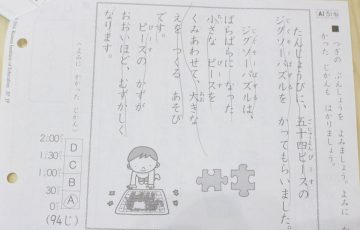 AⅠ 51b
つぎの ぶんしょうを よみましょう。よみに か
かった じかんも はかりましょう。
たんじょうびに、五十四ピースの
ジグソーパズルを かってもらいました。
ジグソーパズルは、
ばらばらに なった
小さな ピースを
くみあわせて、大きな
えを つくる あそび
です。
ピースの かずが
おおいほど、むずかしく
なります。
〈よみに かかった じかん〉
2:00
1:30
1:00
0:30
0
D
C
B
A
(94じ)